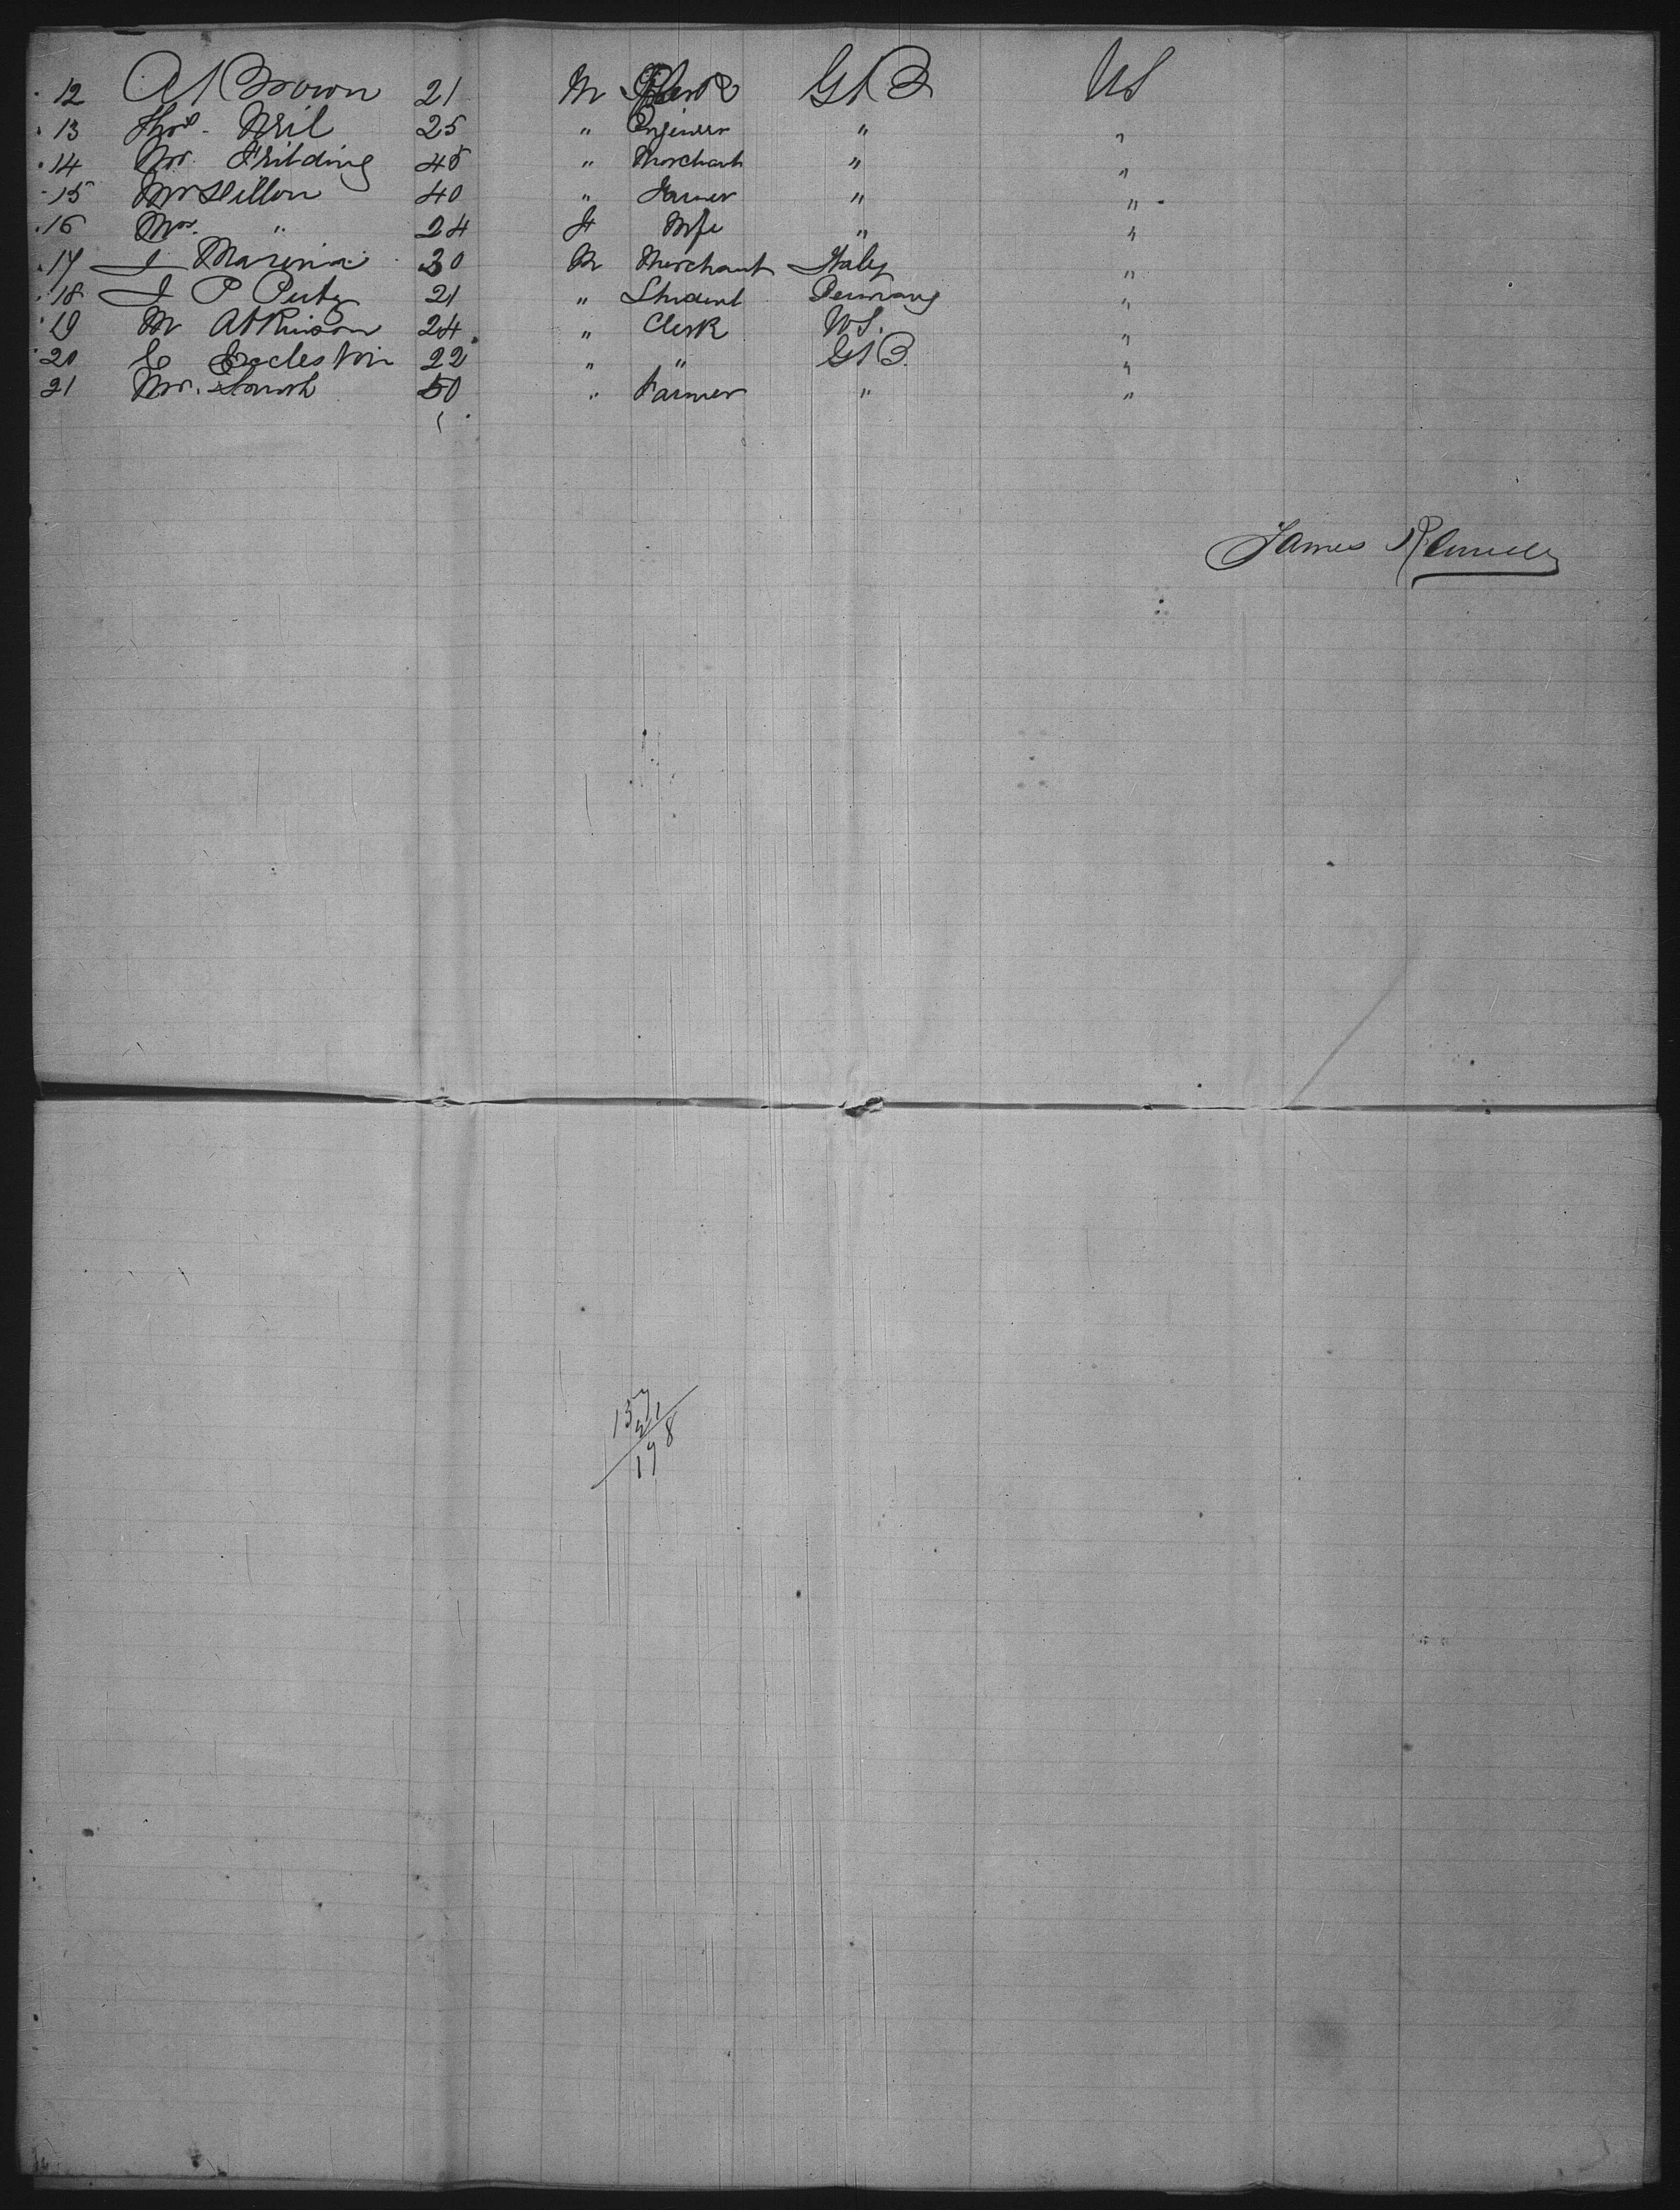 12 A Brown 21 M Clerk Gt B US
13 Thos Neil 25 " Engineer " "
14 Mr. Feilding 45 " Merchant " "
15 Mr Dillon 40 " Farmer " "
16 Mrs. " 24 F Wife " "
17 J Marina 30 M Merchant Italy "
18 J P Putz 21 " Student Germany "
19 M Atkinson 24 " Clerk US. "
20 E Eccleston 22 " " Gt B. "
21 Mr. 50 " Farmer " "
James
157
21
178